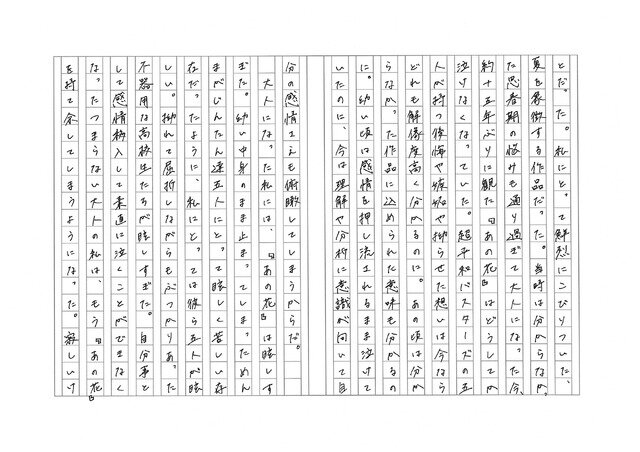 とだった。私にとって鮮烈にこびりついた、
夏を象徴する作品だった。当時は分からなか
った思春期の悩みも通り過ぎて大人になった今、
約十五年ぶりに観た『あの花』はどうしてか
泣けなくなっていた。超平和バスターズの五
人が持つ後悔や嫉妬や拗らせた想いは今の
どれも解像度高く分かるのに、あの頃は分か
らなかった作品に込められた意味も分かるの
に。幼い頃は感情を押し流されるまま泣けて
いたのに、今は理解や分析に意識が向いて自
分の感情さえも俯瞰してしまうからだ。
大人になった私には、『あの花』は眩しす
ぎた。幼い中身のまま止まってしまっためん
まがじんたん達五人にとって眩しく苦しい存
在だったように、私にとっては彼ら五人が眩
しい。拗れて屈折しながらもぶつかりあった
不器用な高校生たちが眩しすぎた。自分事と
して感情移入して素直に泣くことができなく
なったつまらない大人の私は、もう『あの花』
を持て余してしまうようになった。寂しいけ